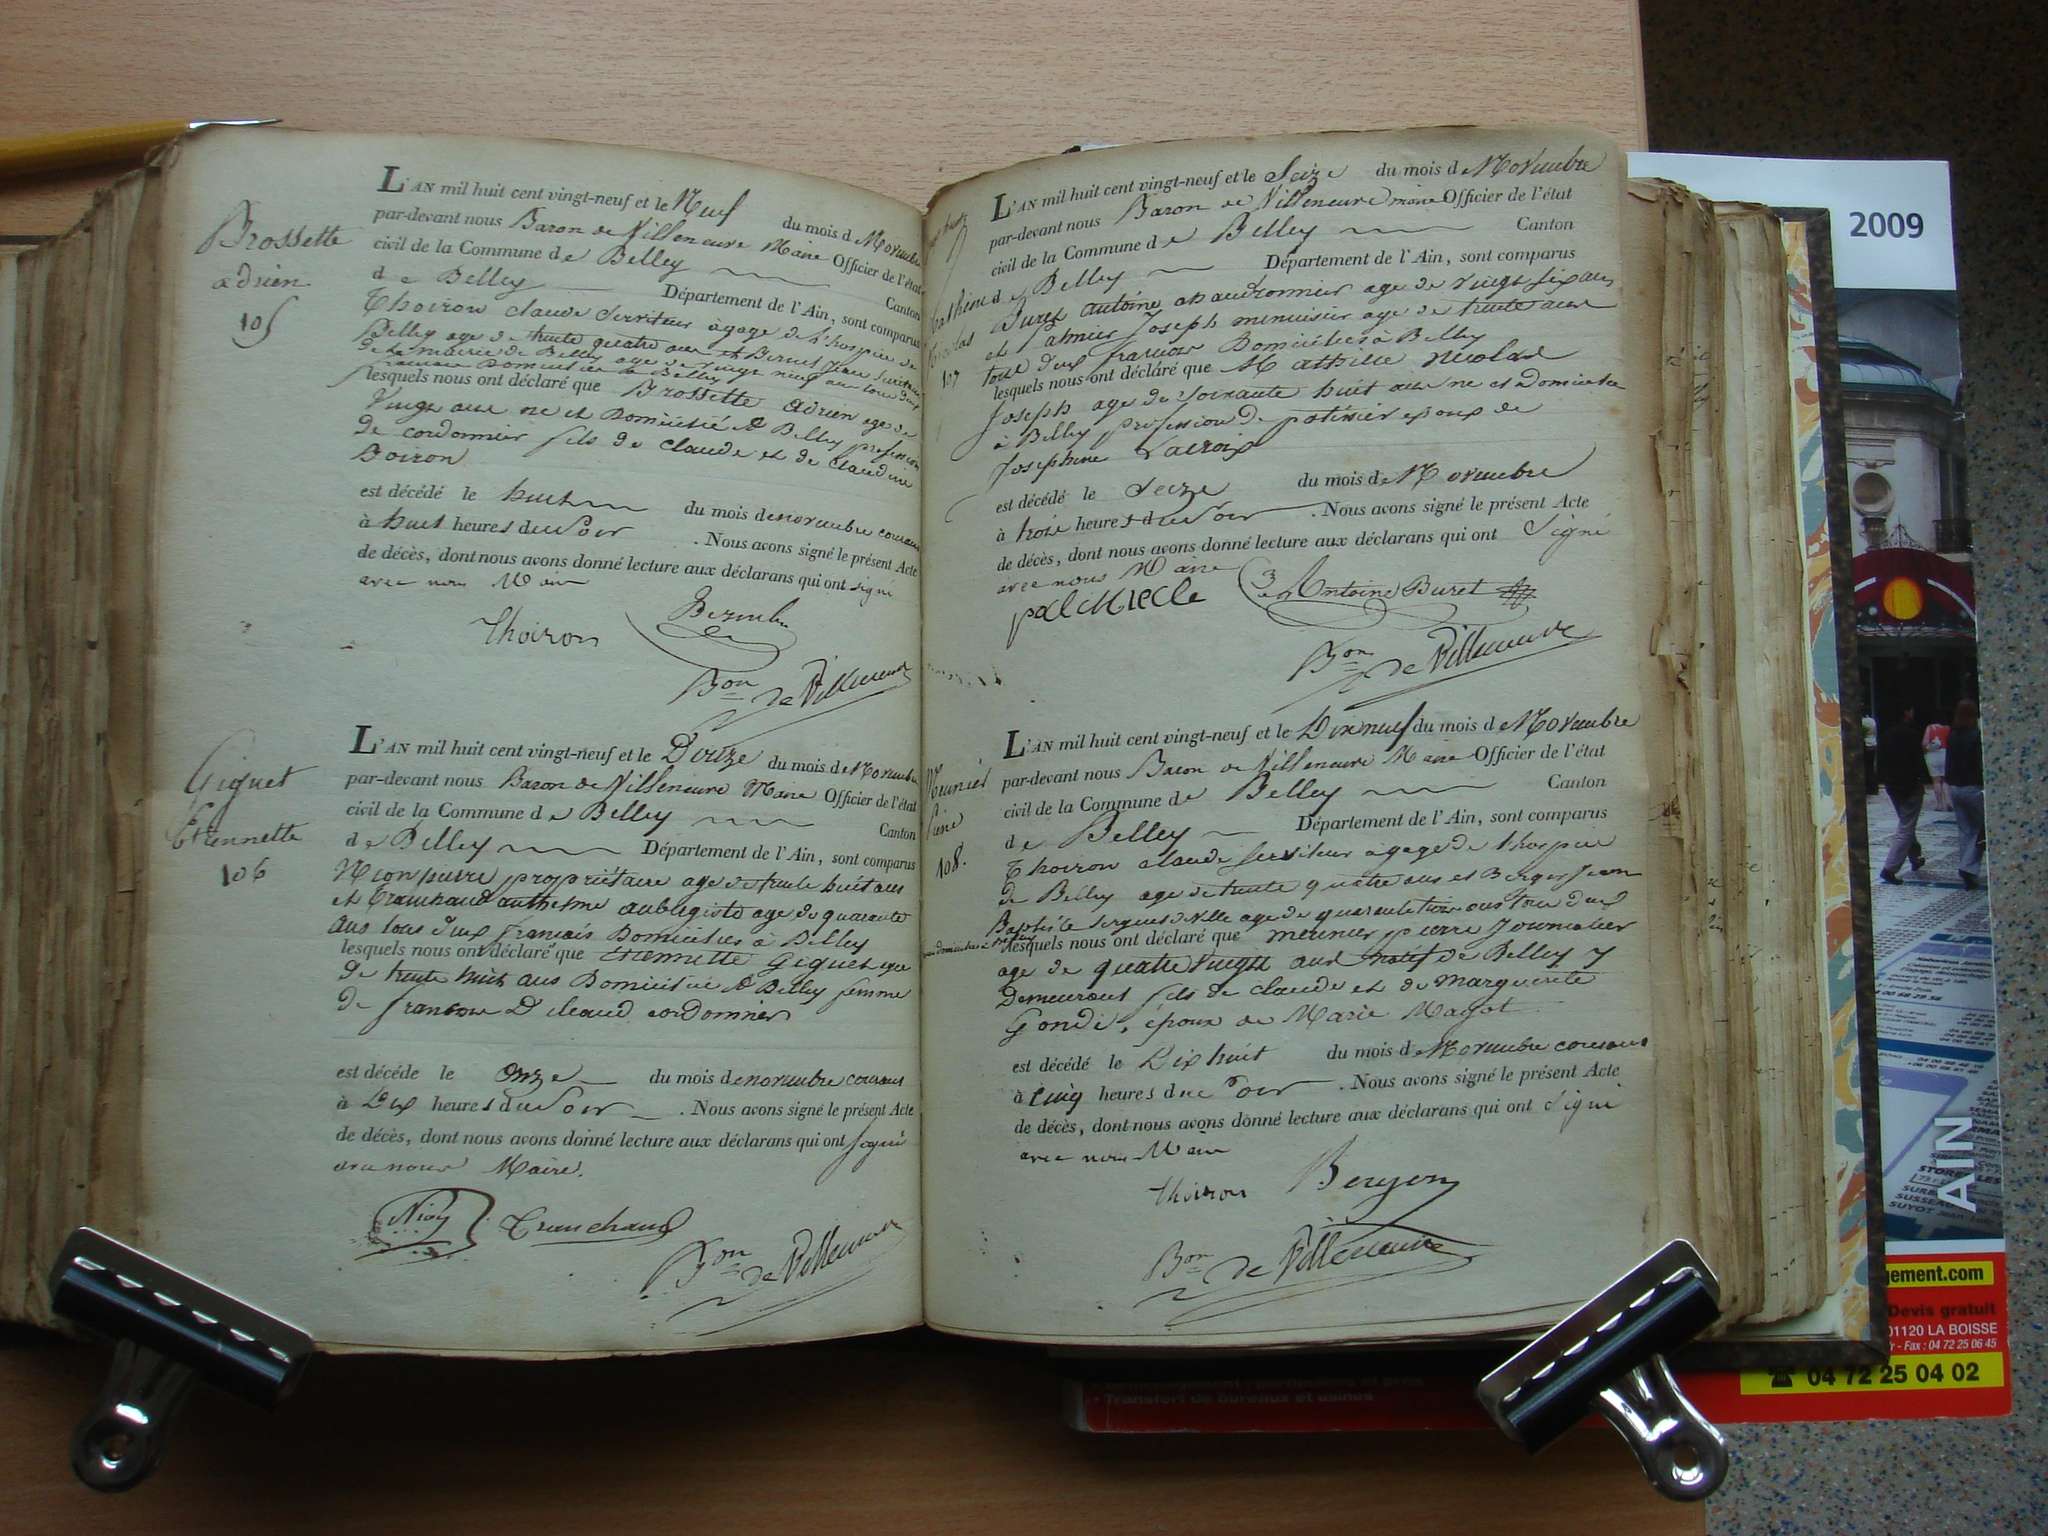 Brossette
adrien
105
L'AN mil huit cent vingt-neuf et le Neuf du mois de Novembre
par-devant nous Baron de Villeneuve Maire Officier de l'état
civil de la Commune de Belley Canton
de Belley Département de l'Ain, sont comparus
Thoiron claude serviteur à gage de l'hospice de
Belley age de trente quatre ans et
de la mairie de Belley age de vingt neuf ans tous deux
lesquels nous ont déclaré que Brossette Adrien age de
Vingt ans né et Domicilié à Belley profession
de cordonnier fils de Claude et de Claudine
Boiron
est décédé le huit du mois de novembre courant
à huit heures du Soir . Nous avons signé le présent Acte
de décès, dont nous avons donné lecture aux déclarans qui ont signé
avec nous Maire
Thoiron
Bon de Villeneuve
Giguet
Etiennette
106
L'AN mil huit cent vingt-neuf et le Douze du mois de Novembre
par-devant nous Baron de Villeneuve Maire Officier de l'état
civil de la Commune de Belley Canton
de Belley Département de l'Ain, sont comparus
pierre propriétaire age de trente huit ans
et Tranchand anthelme aubergiste age de quarante
ans tous deux français Domiciliés à Belley
lesquels nous ont déclaré que Etiennette Giguet age
de trente huit ans Domiciliée à Belley femme
de cordonnier
est décédé le Onze du mois de novembre courant
à Dix heures du Soir . Nous avons signé le présent Acte
de décès, dont nous avons donné lecture aux déclarans qui ont signé
avec nous Maire.
Tranchand
Bon de Villeneuve
Nicolas
107
L'AN mil huit cent vingt-neuf et le Seize du mois de Novembre
par-devant nous Baron de Villeneuve maire Officier de l'état
civil de la Commune de Belley Canton
de Belley Département de l'Ain, sont comparus
Buret antoine chaudronnier age de vingt six ans
et Joseph menuisier age de trente ans
tous deux français Domiciliés à Belley
lesquels nous ont déclaré que Mathieu Nicolas
Joseph age de soixante huit ans né et Domicilié
à Belley profession de patissier epoux de
Josephine Lacroix
est décédé le Seize du mois de Novembre
à trois heures du Soir . Nous avons signé le présent Acte
de décès, dont nous avons donné lecture aux déclarans qui ont Signé
avec nous Maire
Antoine Buret
Bon de Villeneuve
Meunier
pierre
108.
L'AN mil huit cent vingt-neuf et le Dixneuf du mois de Novembre
par-devant nous Baron de Villeneuve Maire Officier de l'état
civil de la Commune de Belley Canton
de Belley Département de l'Ain, sont comparus
Thoiron claude serviteur à gage de l'hospice
de Belley age de trente quatre ans et Berger Jean
Baptiste sergent de ville age de quarante trois ans tous deux
lesquels nous ont déclaré que meunier pierre Journalier
age de quatre vingts ans natif de Belley y
Demeurant fils de claude et de Marguerite
Gondi, époux de Marie Magot
est décédé le Dix huit du mois de Novembre courant
à Cinq heures du Soir . Nous avons signé le présent Acte
de décès, dont nous avons donné lecture aux déclarans qui ont Signé
avec nous Maire
thoiron Berger
Bon de Villeneuve
2009
AIN
gement.com
Devis gratuit
01120 LA BOISSE
Fax : 04 72 25 06 45
04 72 25 04 02
Transfert de bureaux et usines